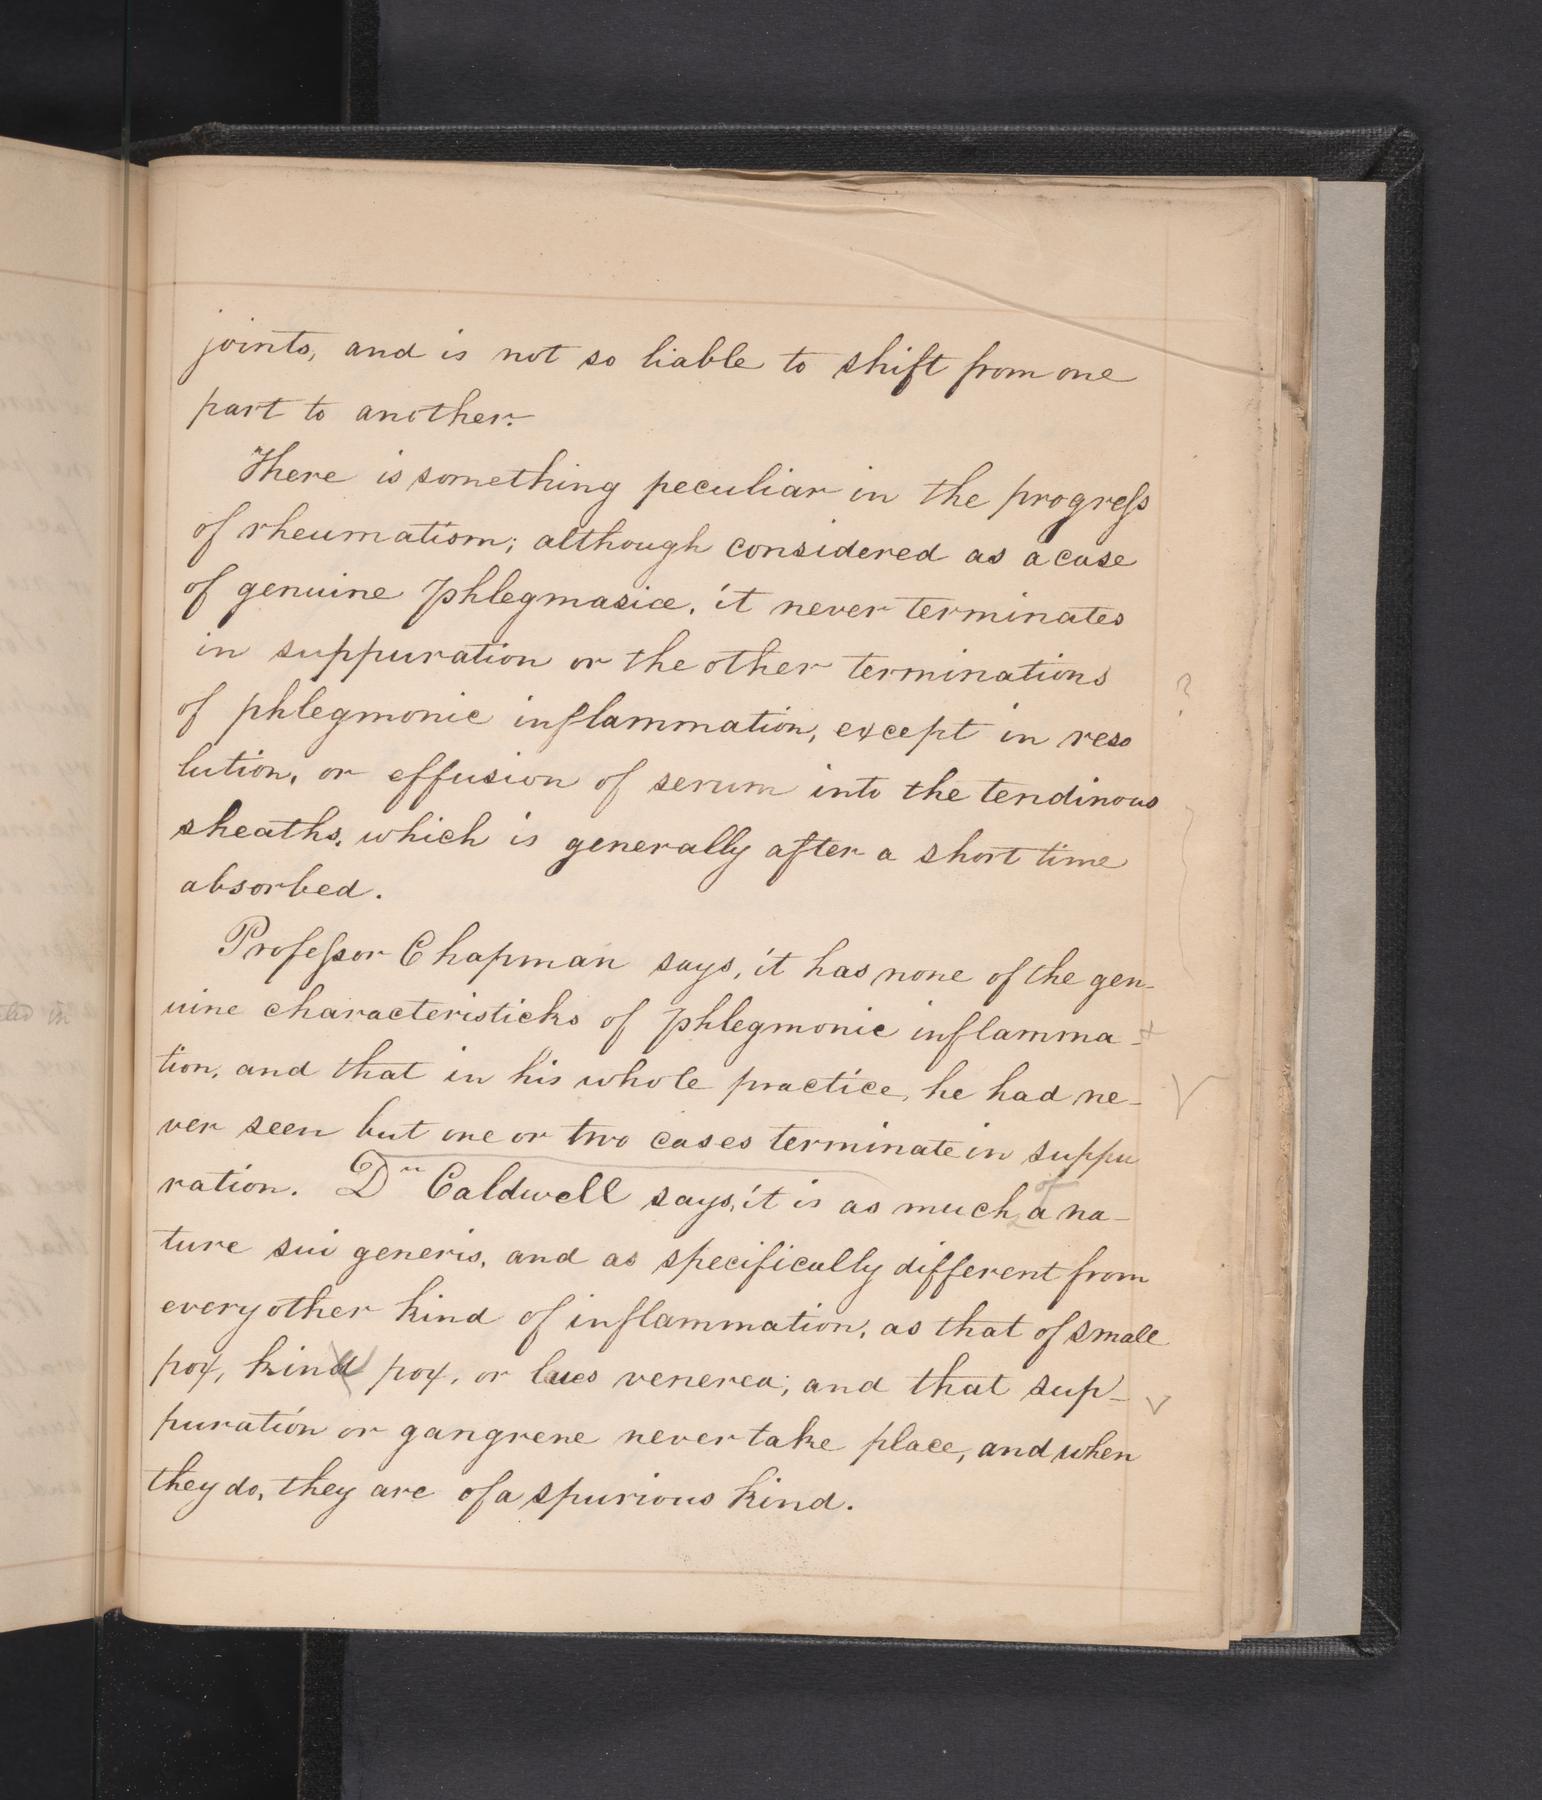 joints, and is not so liable to shift from one
part to another.
There is something peculiar in the progress
of rheumatism; although considered as a case
of genuine phlegmasiæ, it never terminates
in suppuration or the other terminations
?
of phlegmonic inflammation, except in reso
lution, or effusion of serum into the tendinous
sheaths, which is generally after a short time
absorbed.
Professor Chapman says, it has none of the gen-
uine characteristicks of phlegmonic inflamma-
tion, and that in his whole practice, he had ne-
ver seen but one or two cases terminate in suppu
ration. Dr Caldwell says, it is as much of a na-
ture sui generis, and as specifically different from
every other kind of inflammation, as that of small
pox, kind pox, or lues venerea; and that sup-
puration or gangrene never take place, and when
they do, they are of a spurious kind.